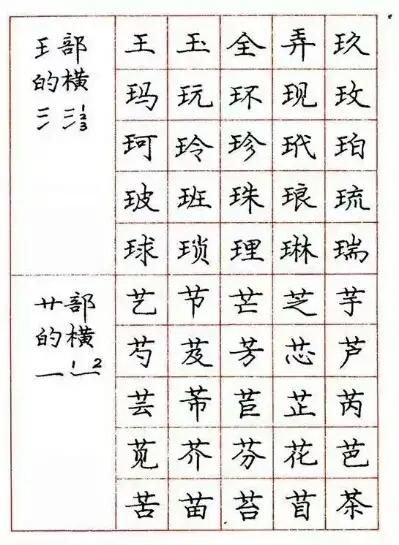 王部
的横
三 三 1 2 3
王 玉 全 弄 玖
玛 玩 环 现 玫
珂 玲 珍 玳 珀
玻 班 珠 琅 琉
球 琐 理 琳 瑞
艹部
的横
1 2
艺 节 芒 芝 芋
芍 芨 芳 芯 芦
芸 芾 苣 芷 芮
苋 芥 芬 花 芭
苦 苗 苔 苜 茶